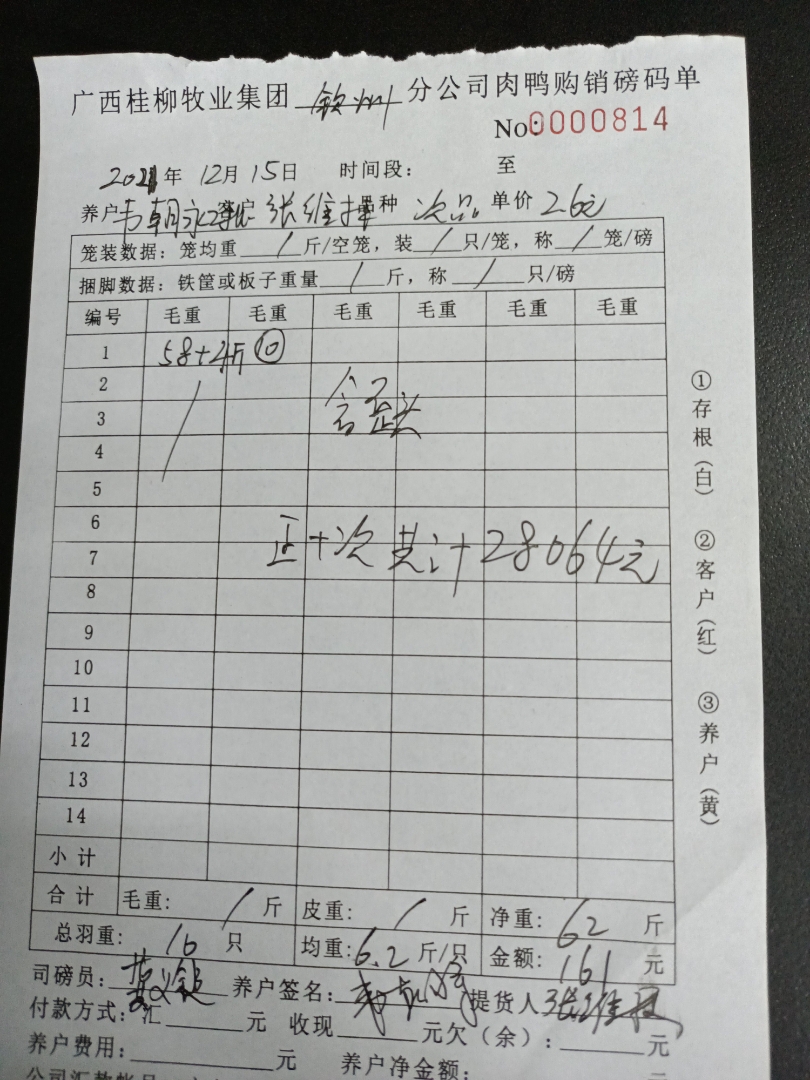 广西桂柳牧业集团 钦州 分公司肉鸭购销磅码单
No:0000814
2021年 12月 15日 时间段: 至
养户 韦朝永 客户 张维 品种 次品 单价 2.6元
笼装数据:笼均重 / 斤/空笼,装 / 只/笼,称 / 笼/磅
捆脚数据:铁筐或板子重量 / 斤,称 / 只/磅
编号 毛重 毛重 毛重 毛重 毛重 毛重
1 58+4斤 ⑩
2
3 含歪头
4
5
6
7 正+次 共计 28064元
8
9
10
11
12
13
14
小计
合计 毛重: / 斤 皮重: / 斤 净重: 62 斤
总羽重: 10 只 均重: 6.2 斤/只 金额: 161 元
司磅员: 养户签名: 提货人 张维
付款方式:汇 元 收现 元欠(余): 元
养户费用: 元 养户净金额: 元
公司汇款帐号
①存根(白) ②客户(红) ③养户(黄)